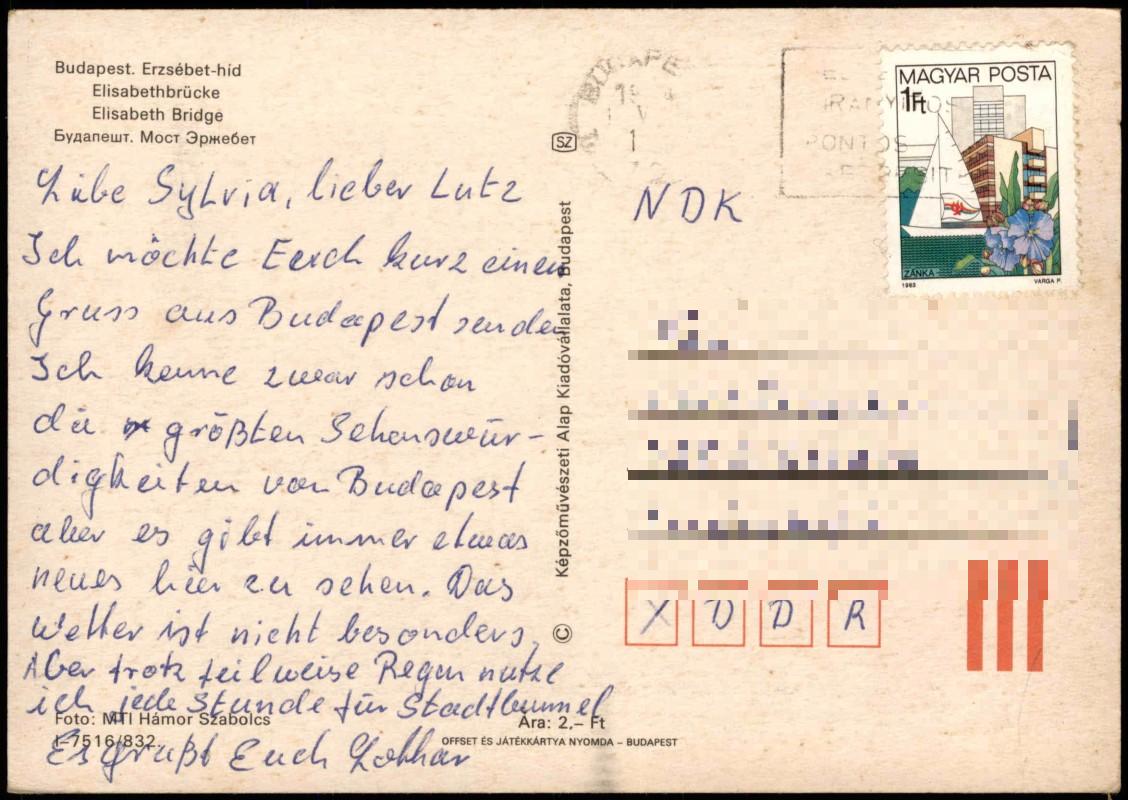 Budapest. Erzsébet-híd
Elisabethbrücke
Elisabeth Bridge
Будапешт. Мост Эржебет
Liebe Sylvia, lieber Lutz
Ich möchte Euch kurz einen
Gruss aus Budapest senden
Ich kenne zwar schon
die größten Sehenswür-
digkeiten von Budapest
aber es gibt immer etwas
neues hier zu sehen. Das
Wetter ist nicht besonders,
Aber trotz teilweise Regen nutze
ich jede Stunde für Stadtbummel
Es grüßt Euch Lothar
Foto: MTI Hámor Szabolcs
I-7516/832
Ára: 2,– Ft
OFFSET ÉS JÁTÉKKÁRTYA NYOMDA – BUDAPEST
SZ
© Képzőművészeti Alap Kiadóvállalata, Budapest
BUDAPE
PONTOS
MAGYAR POSTA
1Ft
ZÁNKA
1983
VARGA P.
NDK
X D D R